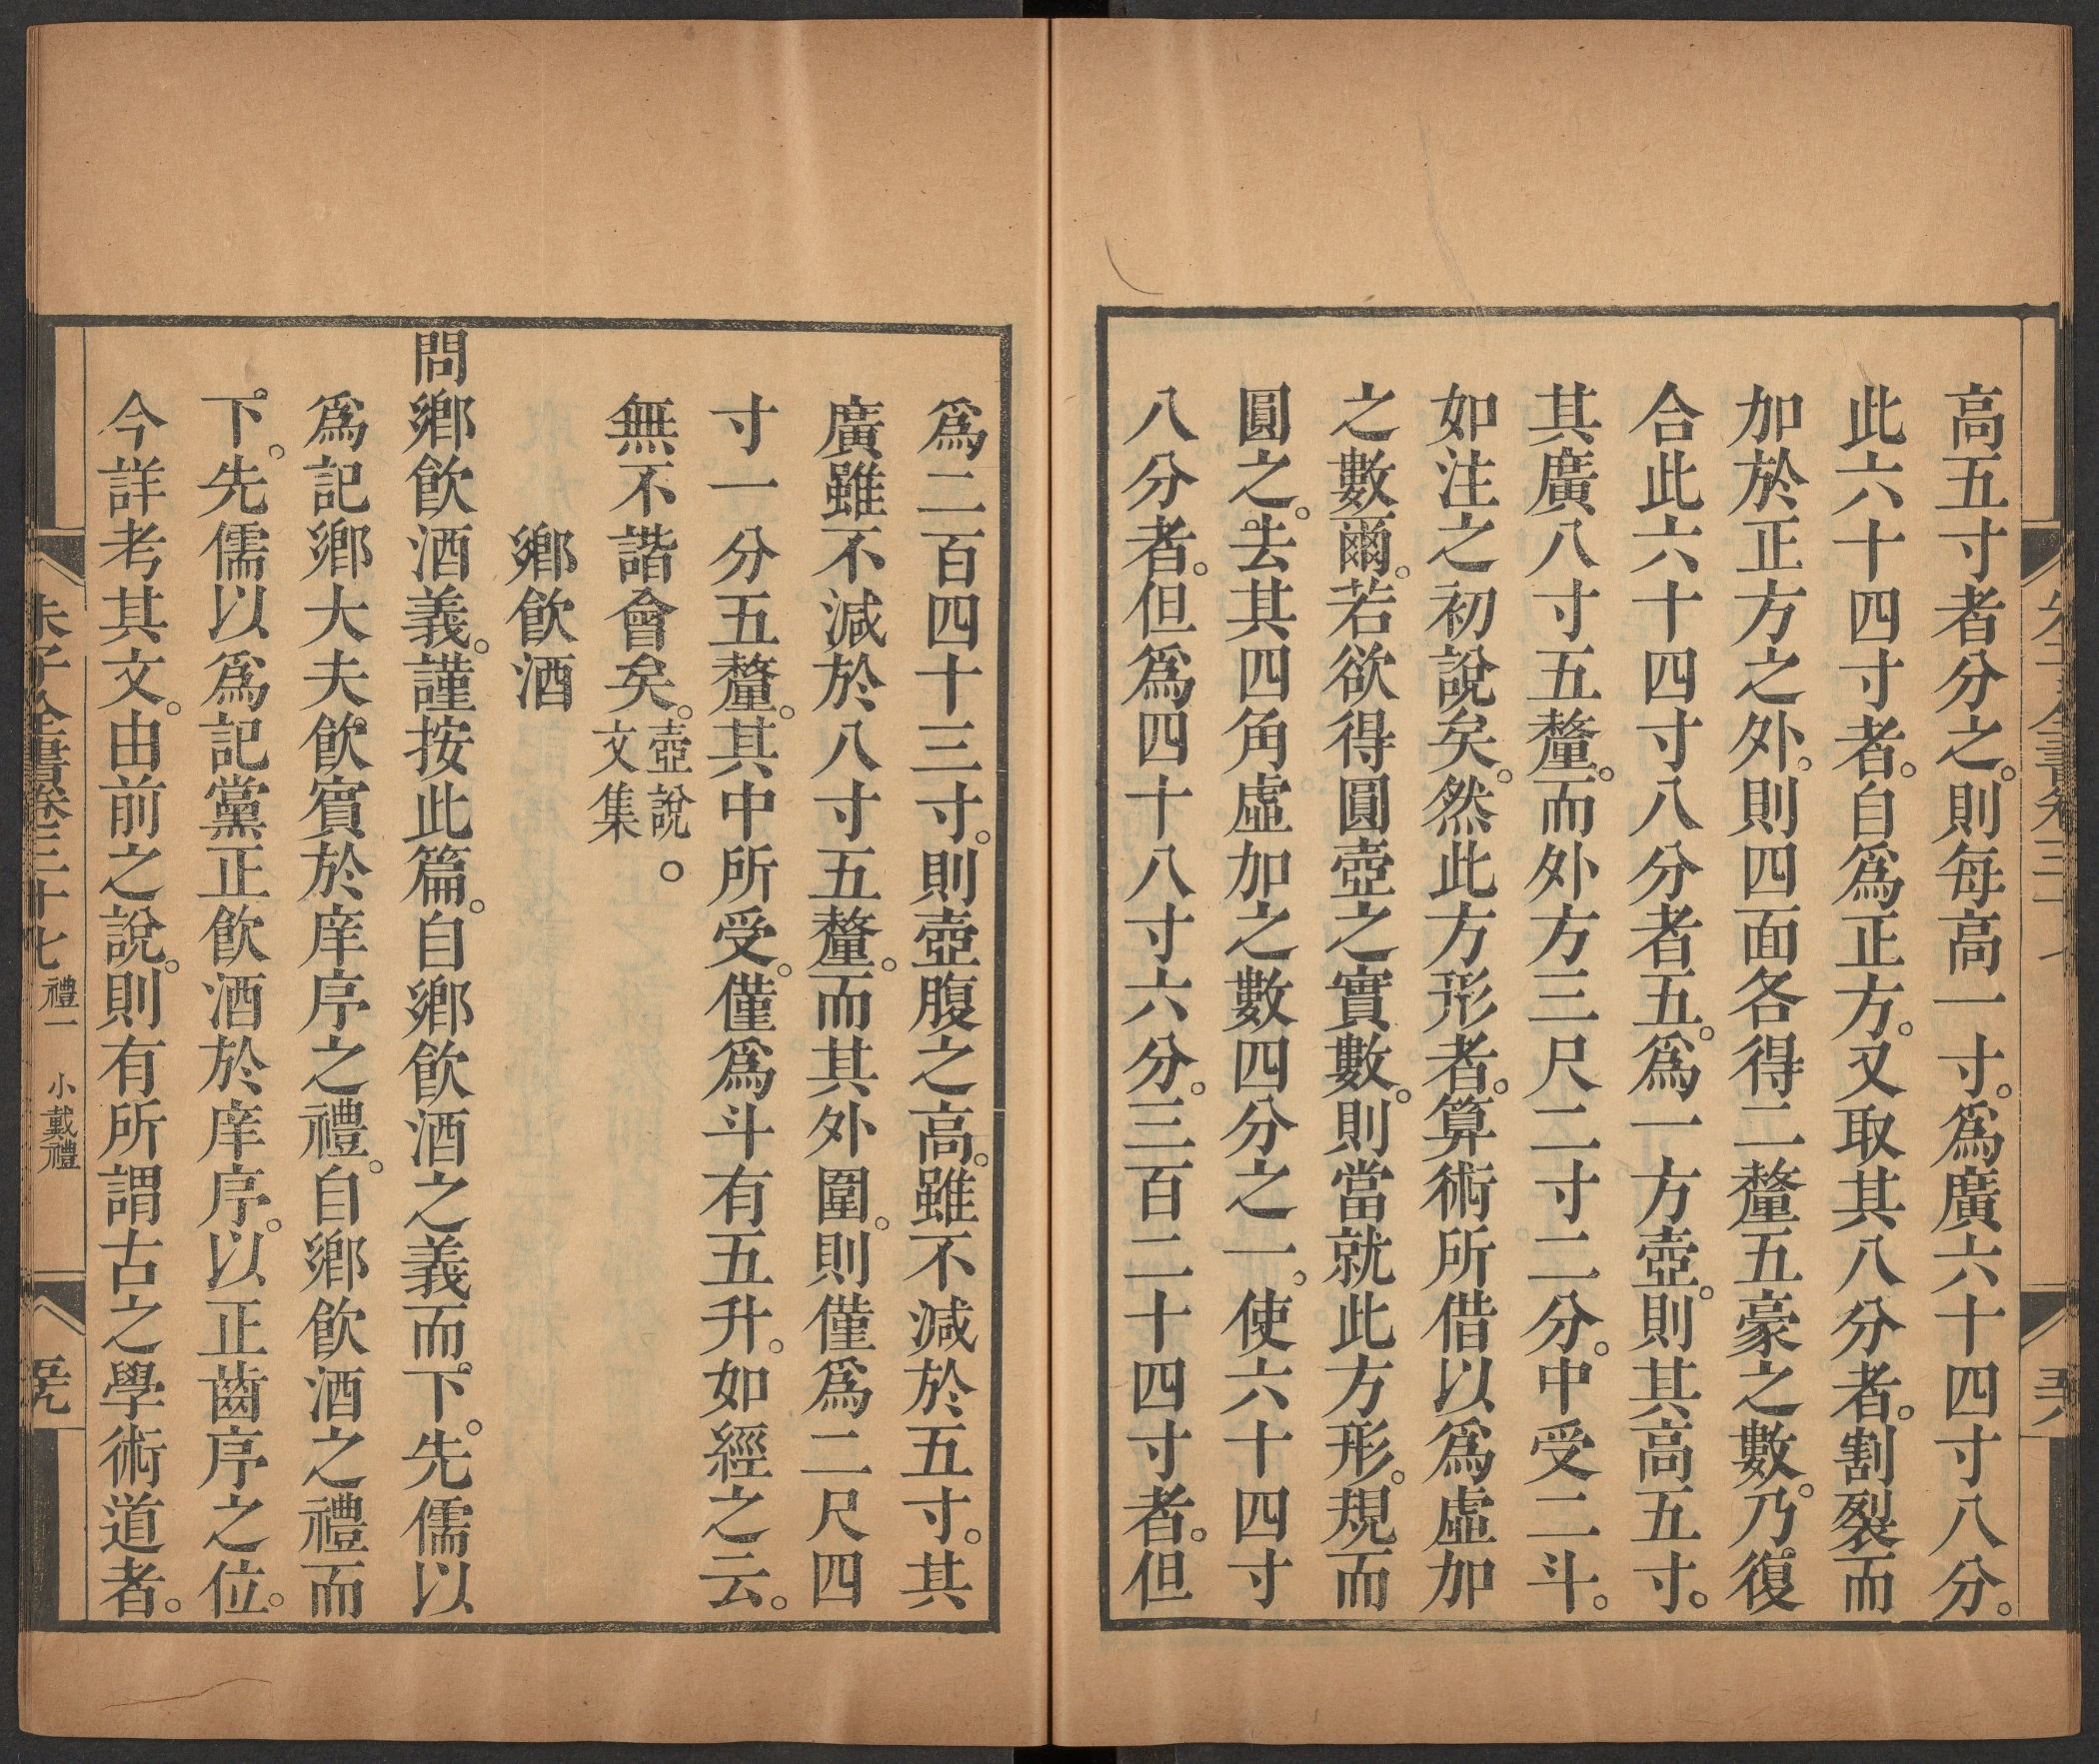 高五寸者分之。則每高一寸。爲廣六十四寸八分。
此六十四寸者。自爲正方。又取其八分者。割裂而
加於正方之外。則四面各得二釐五豪之數。乃復
合此六十四寸八分者五。爲一方壺。則其高五寸。
其廣八寸五釐。而外方三尺二寸二分。中受二斗。
如注之初說矣。然此方形者。算術所借以爲虛加
之數爾。若欲得圓壺之實數。則當就此方形。規而
圓之。去其四角虛加之數四分之一。使六十四寸
八分者。但爲四十八寸六分。三百二十四寸者。但
爲二百四十三寸。則壺腹之高。雖不減於五寸。其
廣雖不減於八寸五釐。而其外圍。則僅爲二尺四
寸一分五釐。其中所受。僅爲斗有五升。如經之云。
無不諧會矣。壺說
文集。
鄉飮酒
問鄉飮酒義。謹按此篇。自鄉飮酒之義而下。先儒以
爲記鄉大夫飮賓於庠序之禮。自鄉飮酒之禮而
下。先儒以爲記黨正飮酒於庠序。以正齒序之位。
今詳考其文。由前之說。則有所謂古之學術道者。
朱子全書卷三十七 禮一 小戴禮